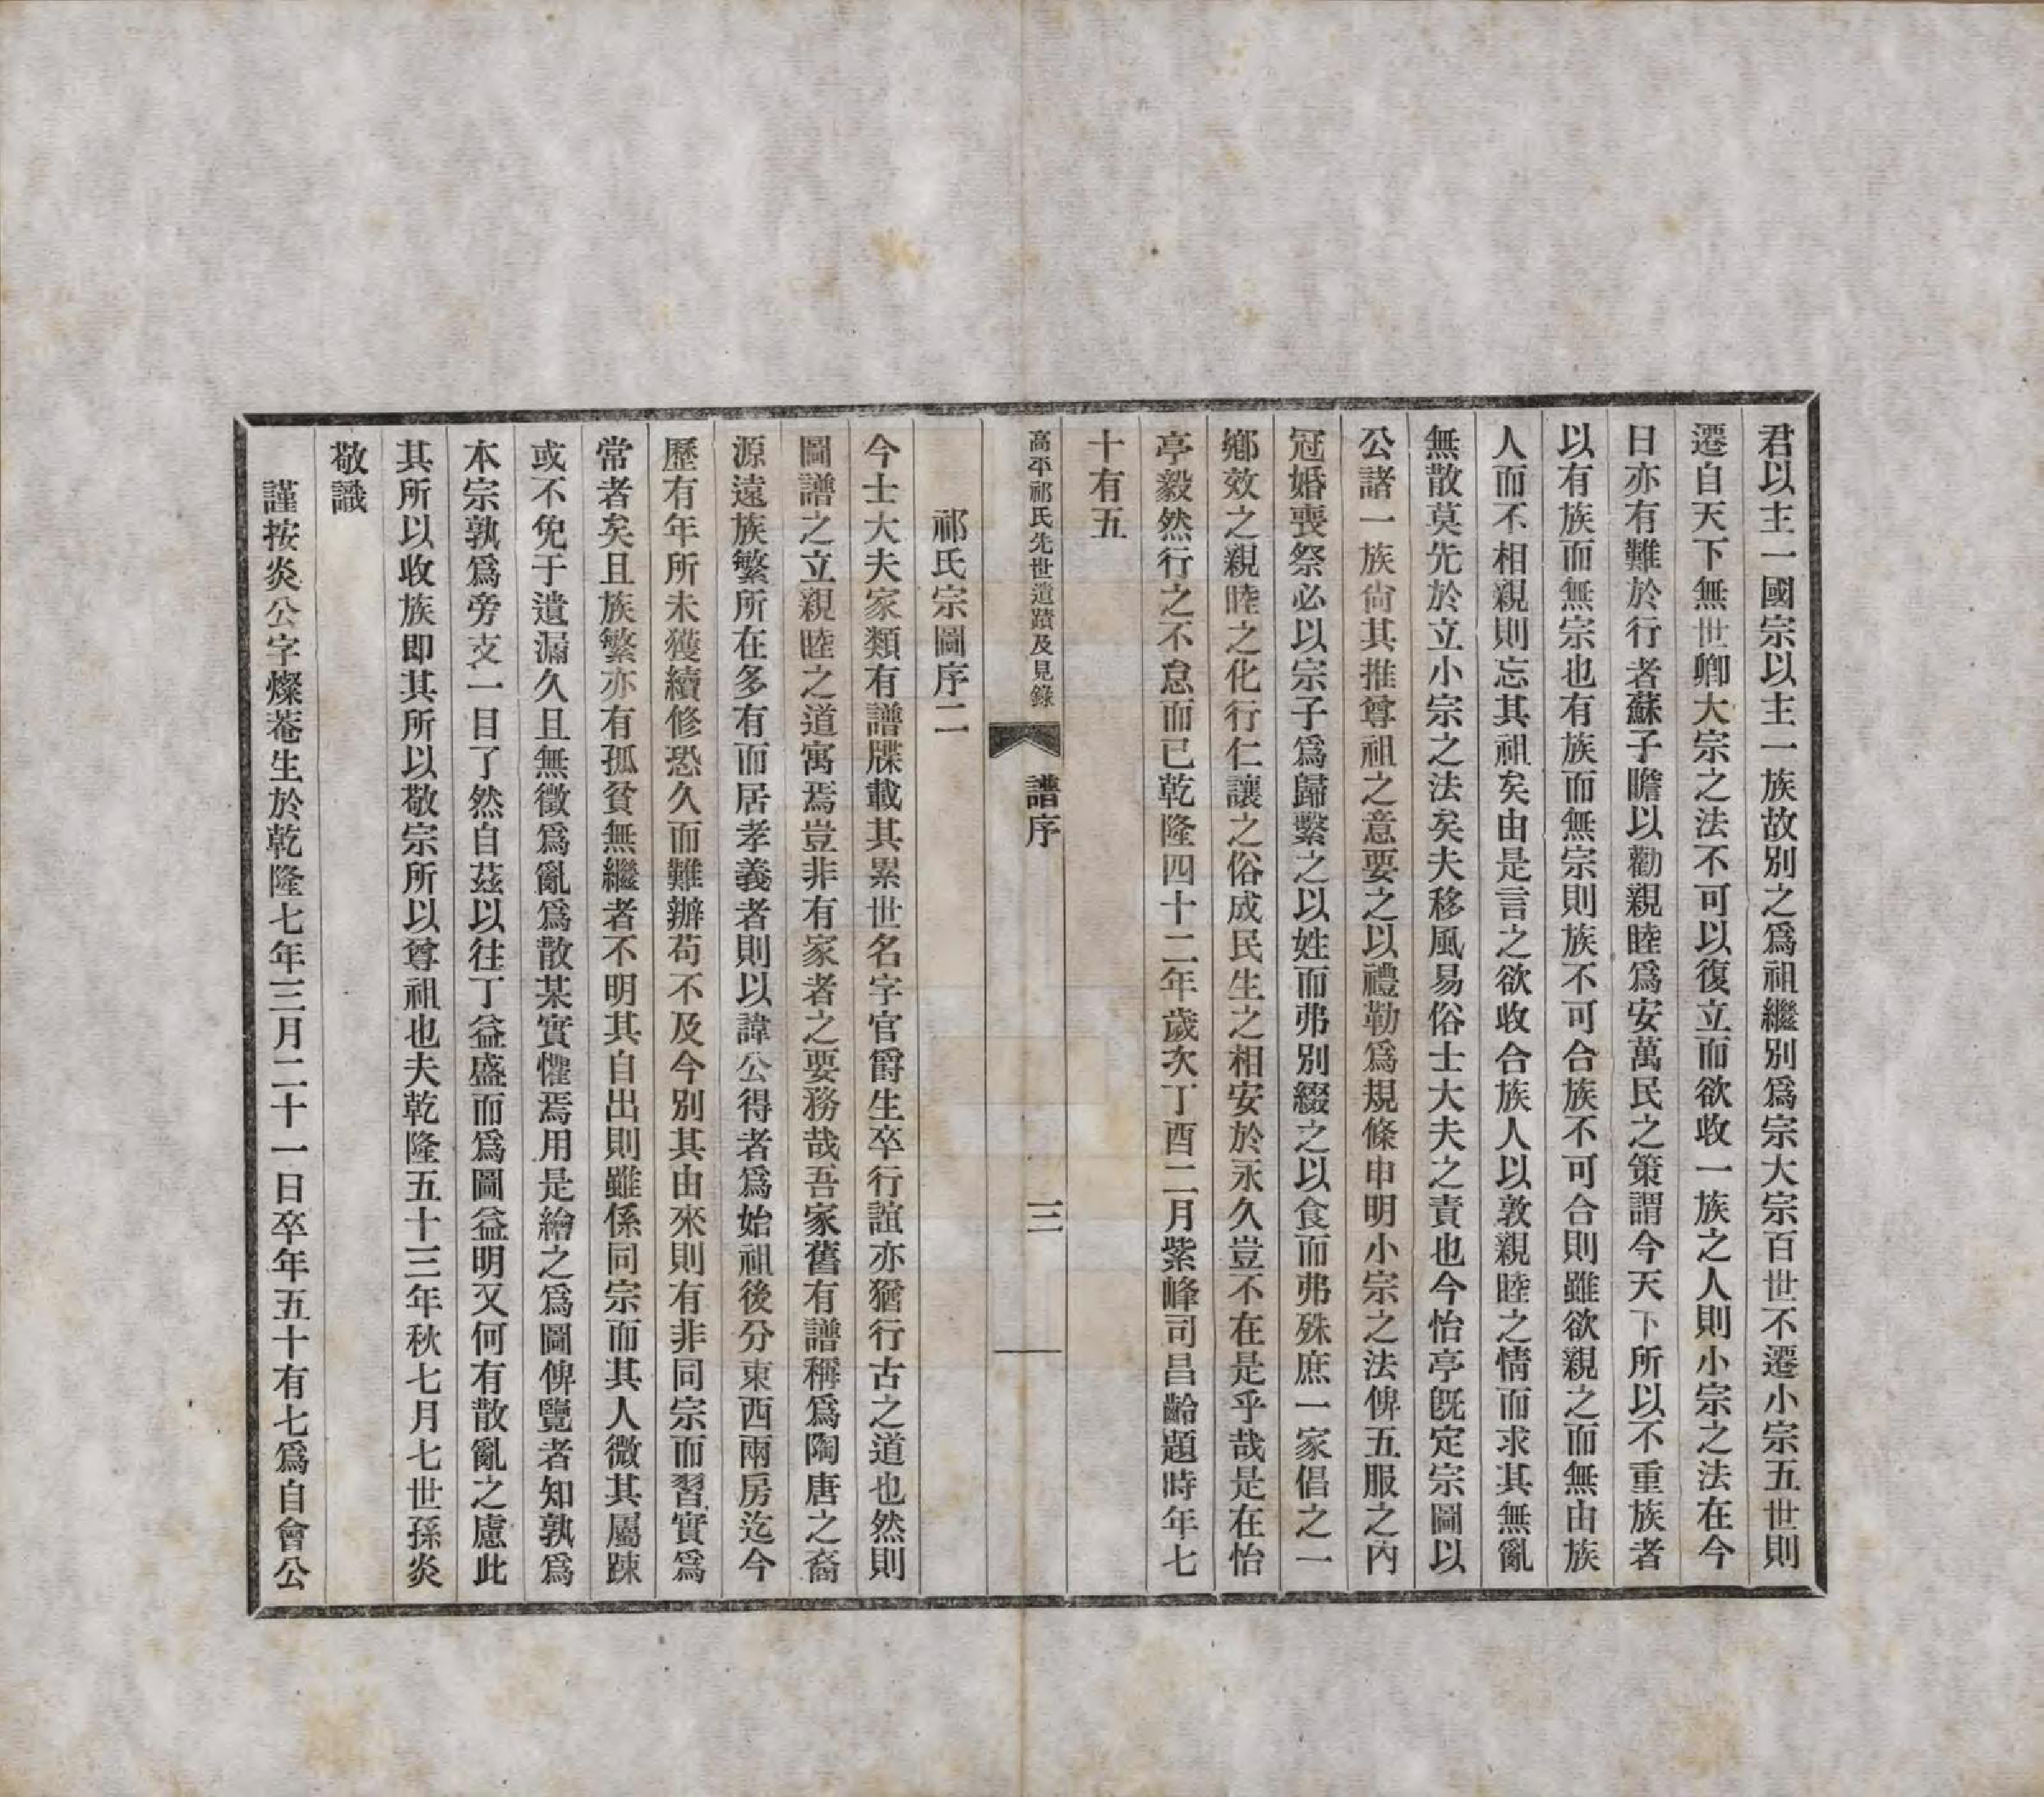 君以主一國宗以主一族故別之爲祖繼別爲宗大宗百世不遷小宗五世則
遷自天下無世卿大宗之法不可以復立而欲收一族之人則小宗之法在今
日亦有難於行者蘇子瞻以勸親睦爲安萬民之策謂今天下所以不重族者
以有族而無宗也有族而無宗則族不可合族不可合則雖欲親之而無由族
人而不相親則忘其祖矣由是言之欲收合族人以敦親睦之情而求其無亂
無散莫先於立小宗之法矣夫移風易俗士大夫之責也今怡亭旣定宗圖以
公諸一族尙其推尊祖之意要之以禮勒爲規條申明小宗之法俾五服之內
冠婚喪祭必以宗子爲歸繫之以姓而弗別綴之以食而弗殊庶一家倡之一
鄕效之親睦之化行仁讓之俗成民生之相安於永久豈不在是乎哉是在怡
亭毅然行之不怠而已乾隆四十二年歲次丁酉二月紫峰司昌齡題時年七
十有五
高平祁氏先世遺蹟及見錄
譜序
三
祁氏宗圖序二
今士大夫家類有譜牒載其累世名字官爵生卒行誼亦猶行古之道也然則
圖譜之立親睦之道寓焉豈非有家者之要務哉吾家舊有譜稱爲陶唐之裔
源遠族繁所在多有而居孝義者則以諱公得者爲始祖後分東西兩房迄今
歷有年所未獲續修恐久而難辦苟不及今別其由來則有非同宗而習實爲
常者矣且族繁亦有孤貧無繼者不明其自出則雖係同宗而其人微其屬踈
或不免于遺漏久且無徵爲亂爲散某實懼焉用是繪之爲圖俾覽者知孰爲
本宗孰爲旁支一目了然自茲以往丁益盛而爲圖益明又何有散亂之慮此
其所以收族即其所以敬宗所以尊祖也夫乾隆五十三年秋七月七世孫炎
敬識
謹按炎公字燦菴生於乾隆七年三月二十一日卒年五十有七爲自會公